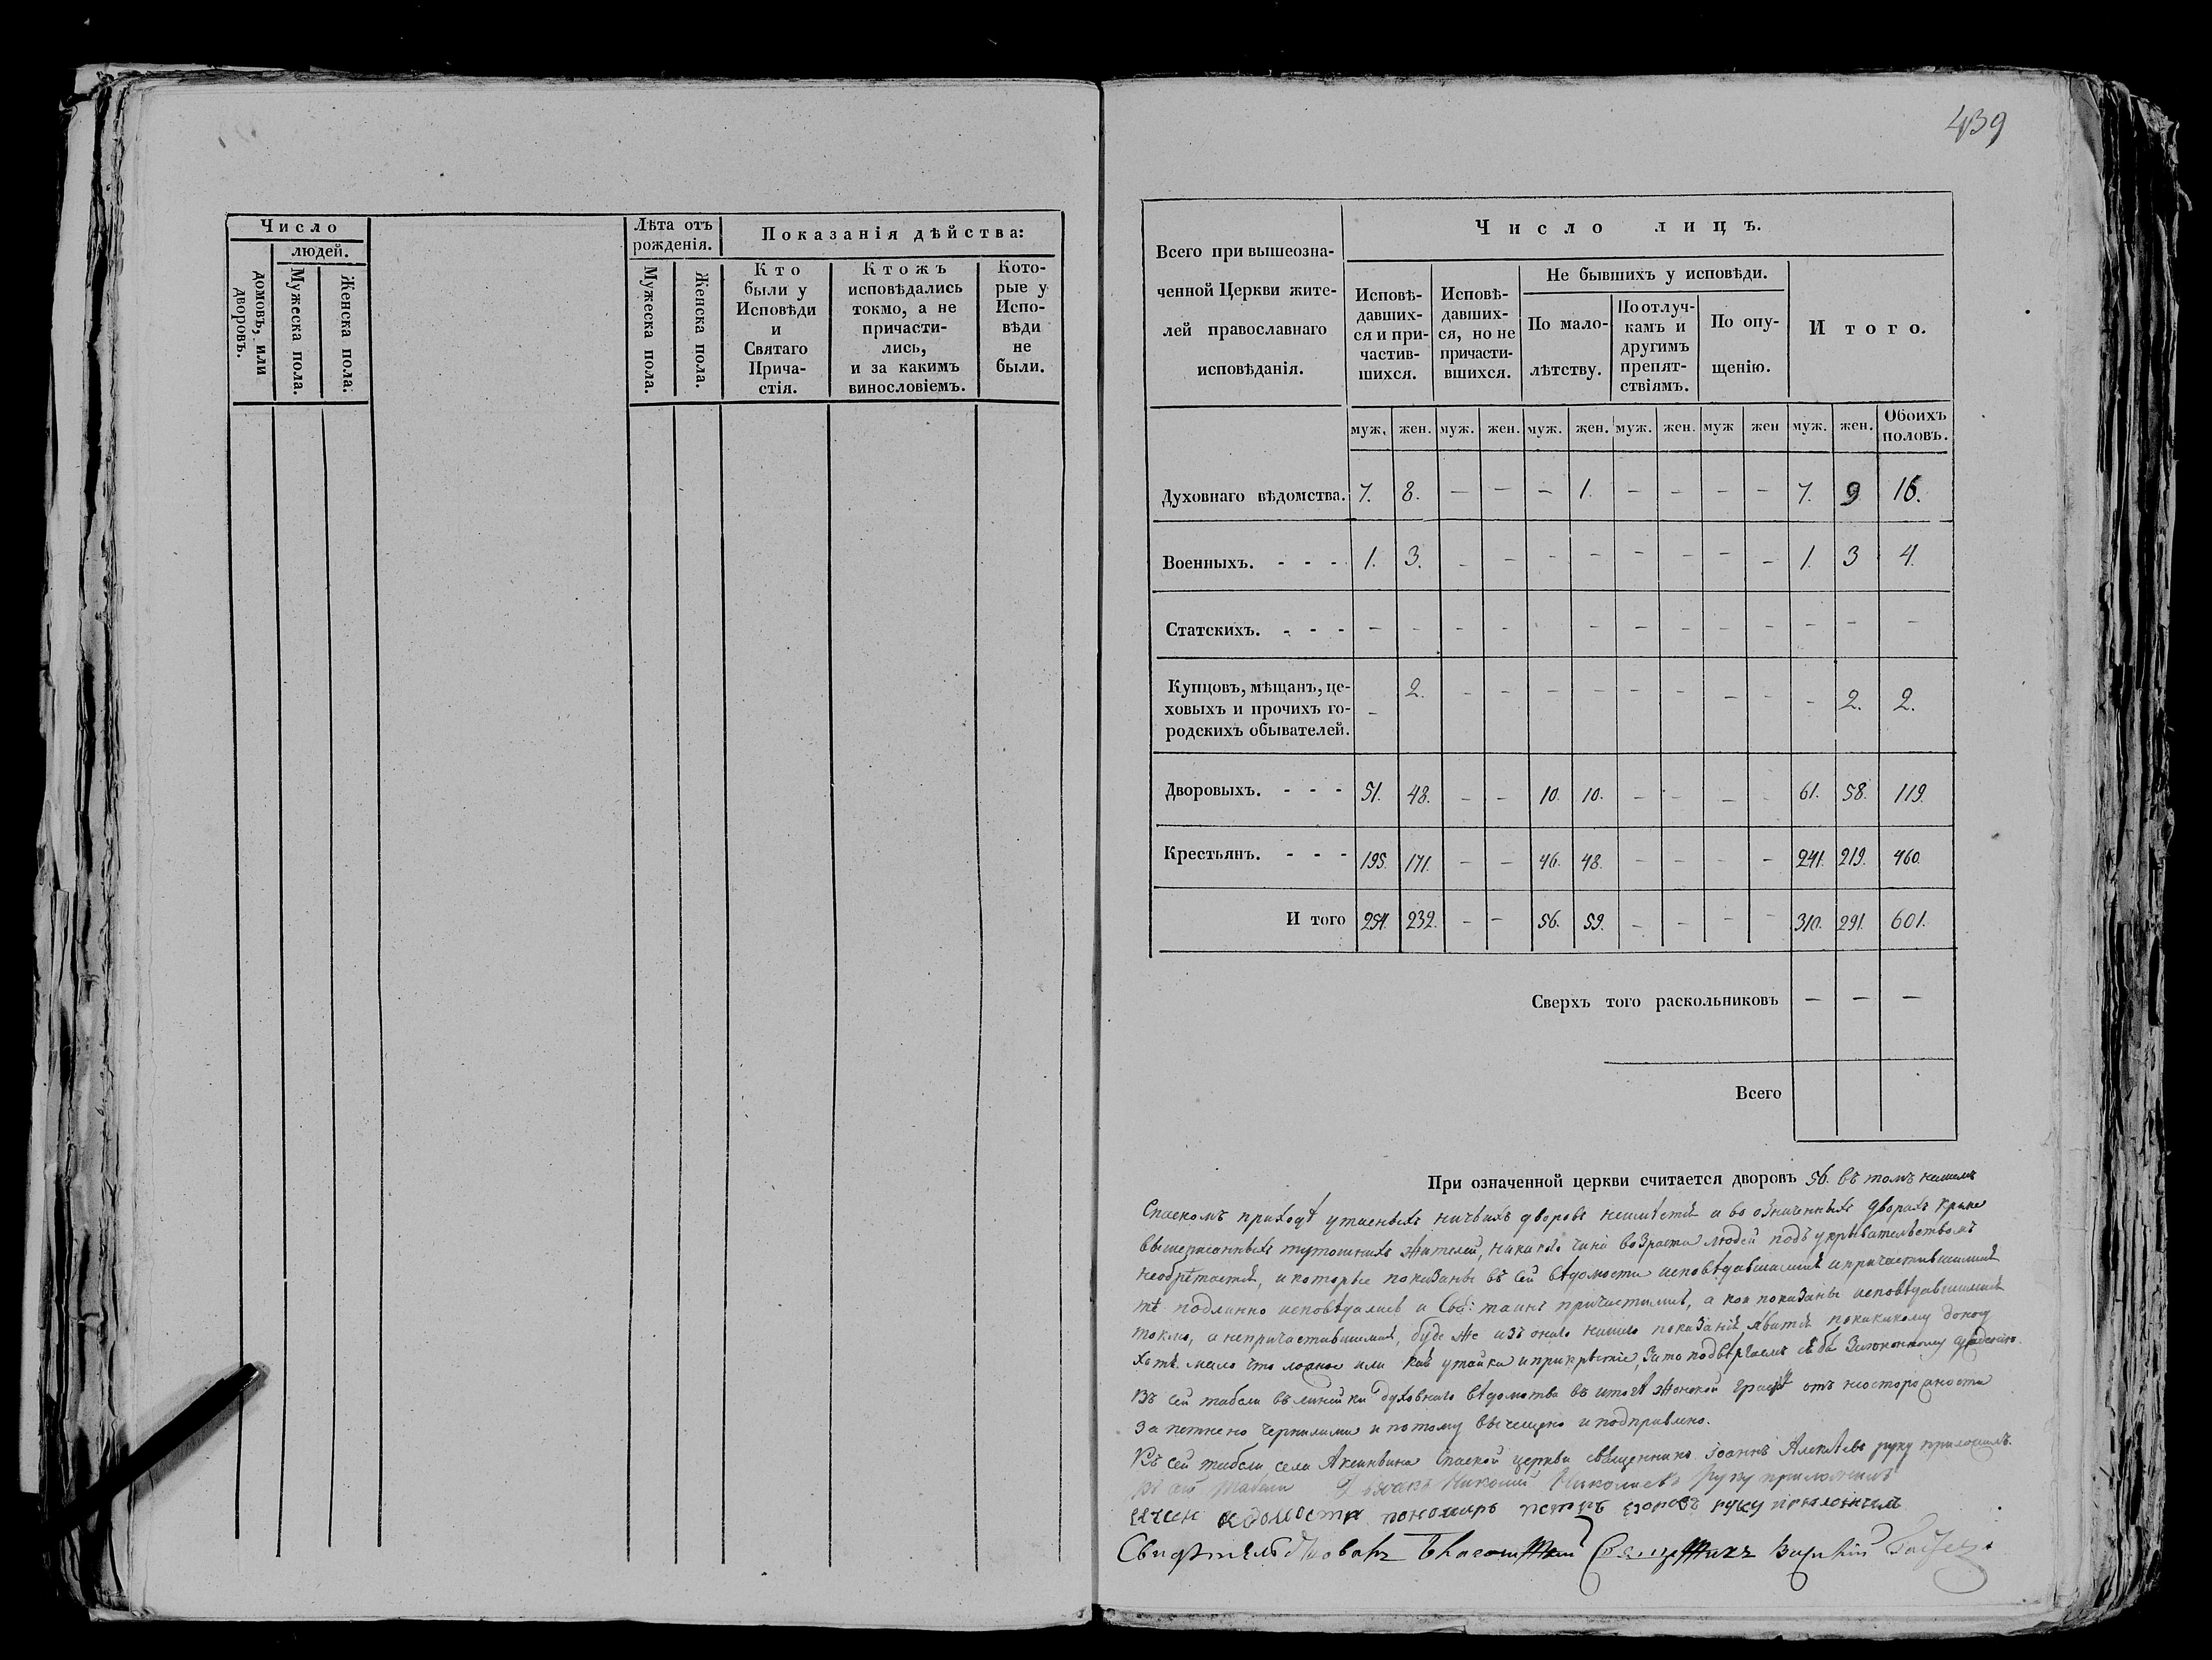 439
Число
людей.
домовъ, или дворовъ.
Мужеска пола.
Женска пола.
Лѣта отъ
рожденія.
Мужеска пола.
Женска пола.
Показанія дѣйства:
Кто
были у
Исповѣди
и
Святаго
Прича-
стія.
Ктожъ
исповѣдались
токмо, а не
причасти-
лись,
и за какимъ
винословіемъ.
Кото-
рые у
Испо-
вѣди
не
были.
Всего при вышеозна-
ченной Церкви жите-
лей православнаго
исповѣданія.
Число лицъ.
Исповѣ-
давших-
ся и при-
частив-
шихся.
Исповѣ-
давших-
ся, но не
причасти-
вшихся.
Не бывшихъ у исповѣди.
По мало-
лѣтству.
По отлуч-
камъ и
другимъ
препят-
ствіямъ.
По опу-
щенію.
И того.
муж. жен. муж. жен. муж. жен. муж. жен. муж жен муж. жен. Обоихъ половъ.
Духовнаго вѣдомства. 7. 8. — — — 1. — — — — 7. 9 16.
Военныхъ. - - - 1. 3. - - - - - - - - 1. 3 4.
Статскихъ. - - - — - - - - - - - - - - -
Купцовъ, мѣщанъ, це-
ховыхъ и прочихъ го-
родскихъ обывателей. - 2. - - - - - - - - - 2. 2.
Дворовыхъ. - - - 51. 48. - - 10. 10. - - - - 61. 58. 119.
Крестьянъ. - - - 195. 171. - - 46. 48. - - - - 241. 219. 460.
И того 254. 232. - - 56. 59. - - - - 310. 291. 601.
Сверхъ того раскольниковъ — — —
Всего
При означенной церкви считается дворовъ 56. въ томъ нашемъ
Спаскомъ приходѣ утаенныхъ ничьихъ дворовъ неимѣется а во означенныхъ дворахъ кроме
вышеписанныхъ тутошнихъ жителей, никакого чина возраста людей подъ укрывательствомъ
необрѣтается, и которые показаны въ сей вѣдомости исповѣдавшимися и причастившимися
тѣ подлинно исповѣдались и Свя: таинъ причастились, а кои показаны исповѣдавшимися
токмо, а непричастившимися, буде же изъ онаго нашего показанія явится покакому доносу
хотя мало что ложное или какая утайка и прикрытіе, зато подвергаемъ себя законному сужденію.
Въ сей табели въ линейки духовнаго вѣдомства въ итогѣ женской графѣ отъ неосторожности
запетнено чернилами и потому вычищено и подправлено.
Къ сей табели села Аксиньина Спаской церкви священникъ Іоаннъ Алексѣевъ руку приложилъ.
Къ сей табели Дьяконъ Николай Николаевъ руку приложилъ
къ сей ведомости пономарь петръ егоровъ руку приложилъ
Свидѣтельствовалъ Благочинный Священникъ Василій